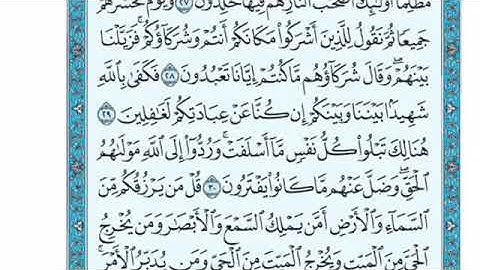 مُظْلِمًا أُو۟لَـٰٓئِكَ أَصْحَـٰبُ ٱلنَّارِ هُمْ فِيهَا خَـٰلِدُونَ ٢٧ وَيَوْمَ نَحْشُرُهُمْ
جَمِيعًا ثُمَّ نَقُولُ لِلَّذِينَ أَشْرَكُوا۟ مَكَانَكُمْ أَنتُمْ وَشُرَكَآؤُكُمْ ۚ فَزَيَّلْنَا
بَيْنَهُمْ ۖ وَقَالَ شُرَكَآؤُهُم مَّا كُنتُمْ إِيَّانَا تَعْبُدُونَ ٢٨ فَكَفَىٰ بِٱللَّهِ
شَهِيدًۢا بَيْنَنَا وَبَيْنَكُمْ إِن كُنَّا عَنْ عِبَادَتِكُمْ لَغَـٰفِلِينَ ٢٩
هُنَالِكَ تَبْلُوا۟ كُلُّ نَفْسٍ مَّآ أَسْلَفَتْ ۚ وَرُدُّوٓا۟ إِلَى ٱللَّهِ مَوْلَىٰهُمُ
ٱلْحَقِّ ۖ وَضَلَّ عَنْهُم مَّا كَانُوا۟ يَفْتَرُونَ ٣٠ قُلْ مَن يَرْزُقُكُم مِّنَ
ٱلسَّمَآءِ وَٱلْأَرْضِ أَمَّن يَمْلِكُ ٱلسَّمْعَ وَٱلْأَبْصَـٰرَ وَمَن يُخْرِجُ
ٱلْحَىَّ مِنَ ٱلْمَيِّتِ وَيُخْرِجُ ٱلْمَيِّتَ مِنَ ٱلْحَىِّ وَمَن يُدَبِّرُ ٱلْأَمْرَ ۚ